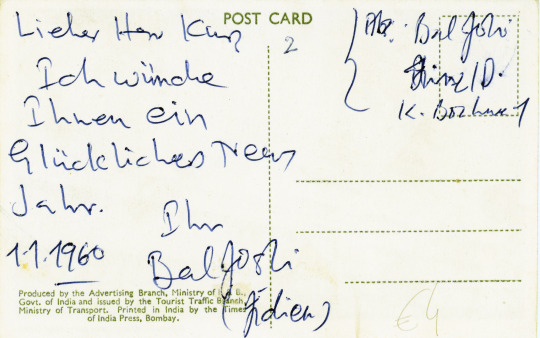 POST CARD
Lieber Herr Kunz
Ich wünche
Ihnen ein
Glückliches Neus
Jahr.
1.1.1960
Ihr
Bal Joshi
(Indien)
Produced by the Advertising Branch, Ministry of
Govt. of India and issued by the Tourist Traffic Branch,
Ministry of Transport. Printed in India by the Times
of India Press, Bombay.
2
Bal Joshi
€4